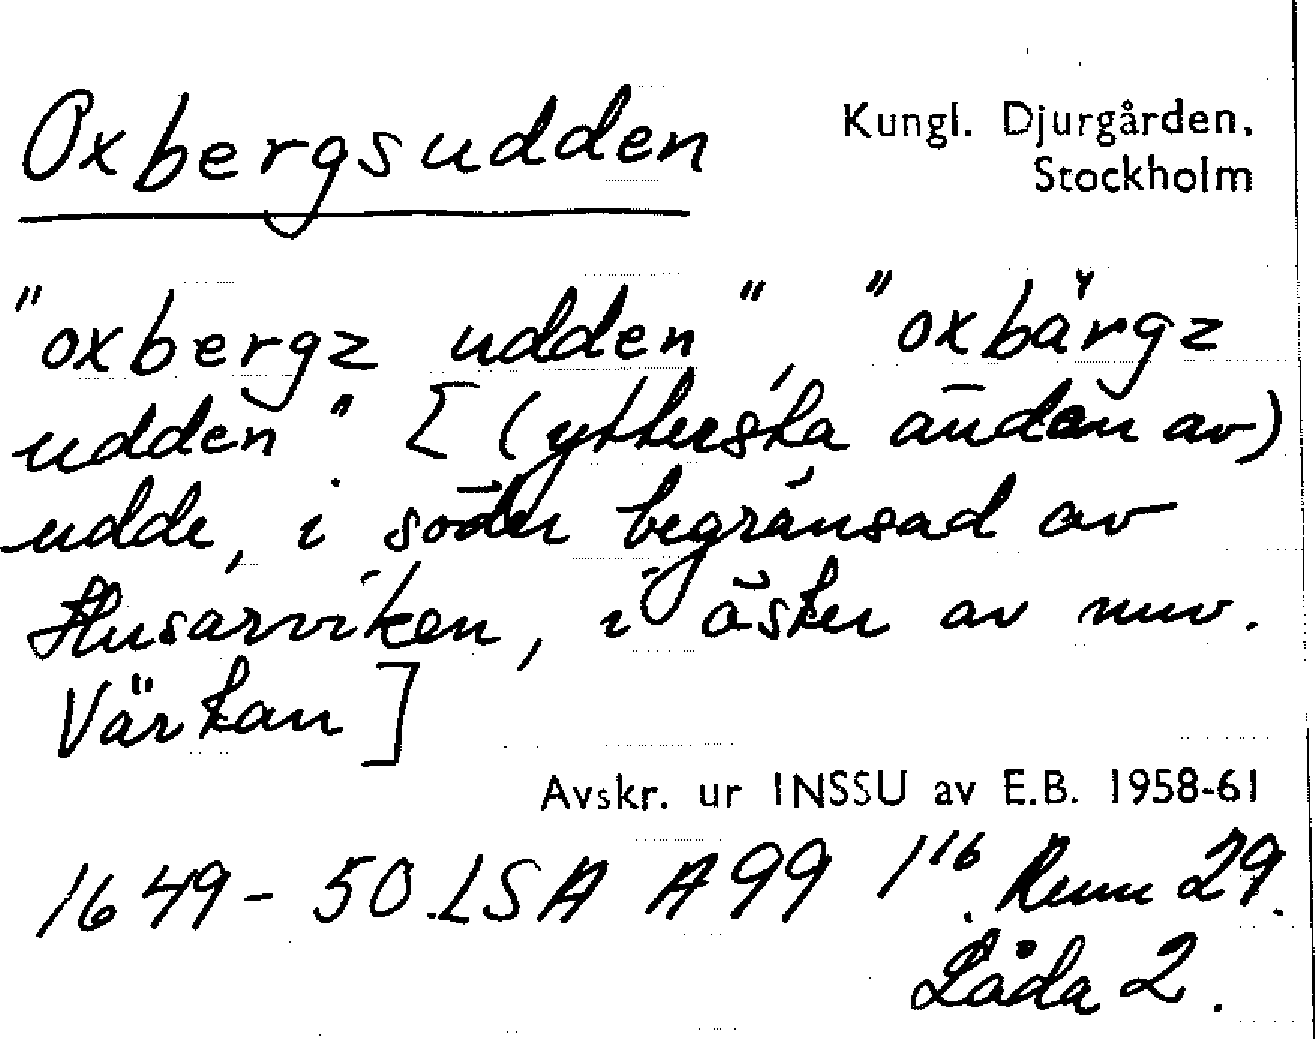 Oxbergsudden
Kungl. Djurgården,
Stockholm
"oxbergz udden", "oxbärgz
udden" [(ytterska änden av)
udde, i söder begränsad av
Husarviken, i öster av nuv.
Värtan]
Avskr. ur INSSU av E.B. 1958-61
1649-50. LSA A 99 1 16. Rum 29.
Låda 2.